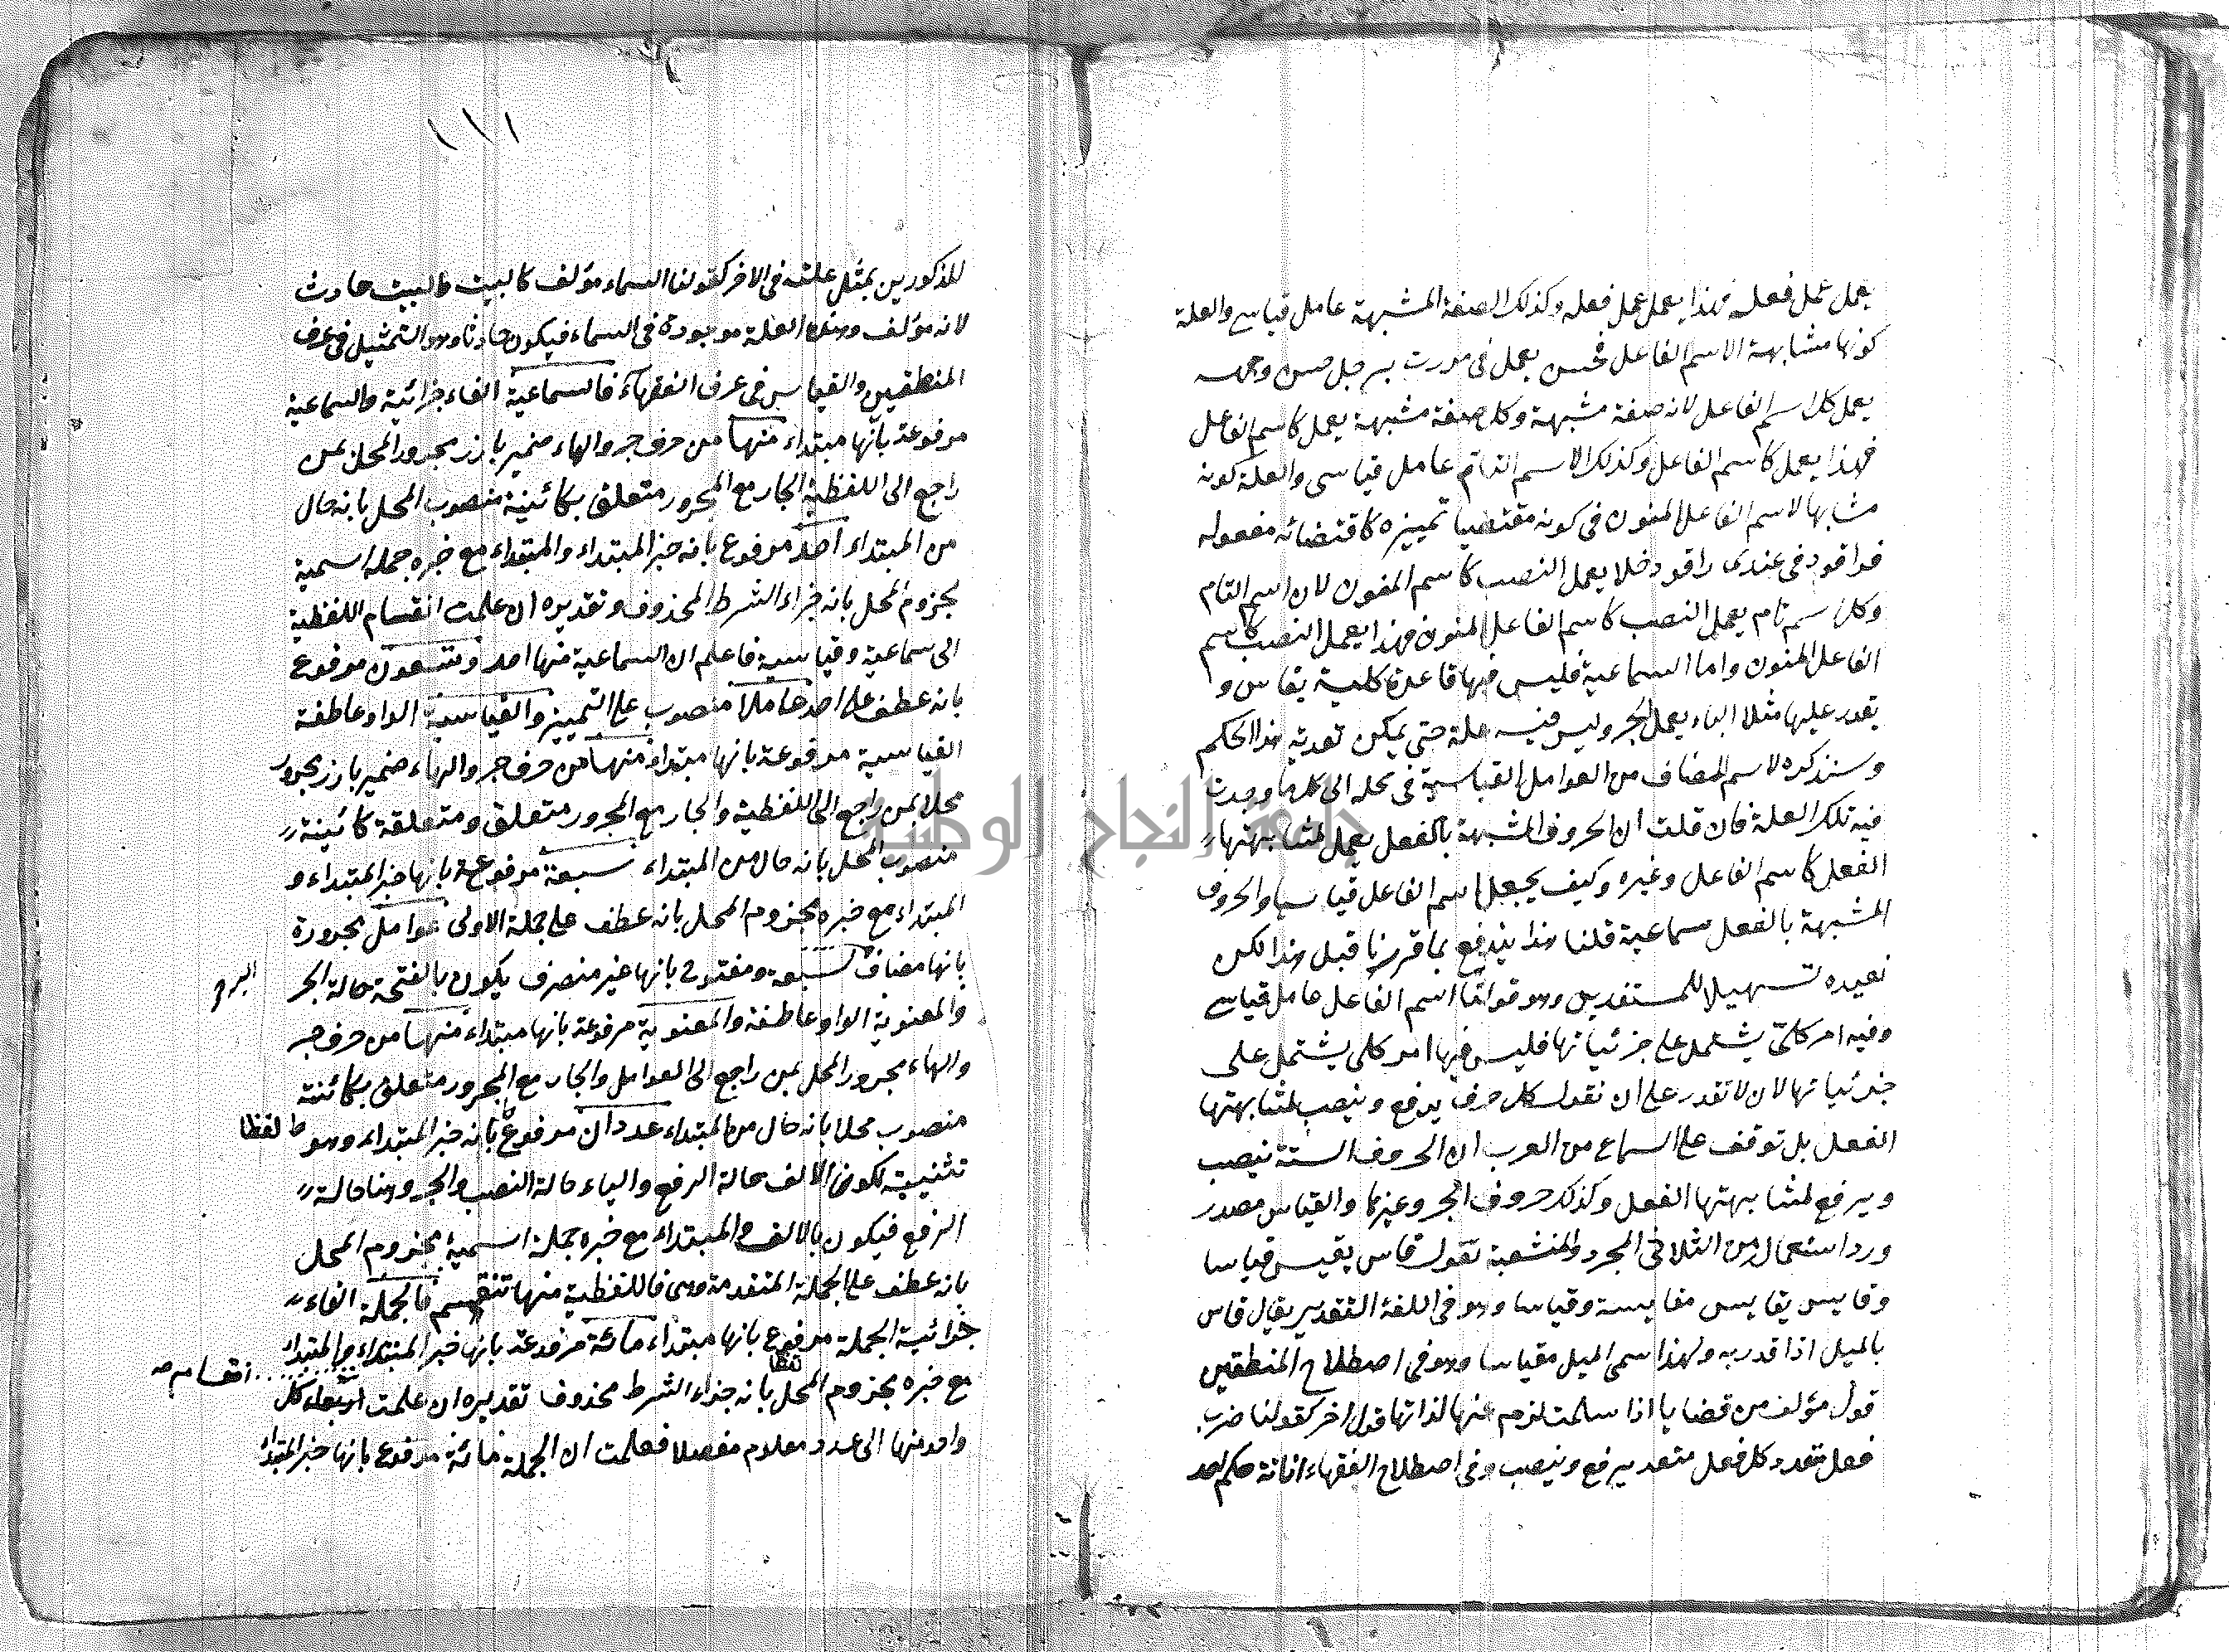 يعمل عمل فعله فهذا يعمل عمل فعله وكذلك الصفة المشبهة عامل قياسي والعلة
كونها مشابهة لاسم الفاعل فحسن يعمل في مررت برجل حسن وجهه
يعمل كاسم الفاعل لانه صفة مشبهة وكل صفة مشبهة يعمل كاسم الفاعل
فهذا يعمل كاسم الفاعل وكذلك الاسم التام عامل قياسي والعلة كونه
مشابها لاسم الفاعل المنون في كونه مقتضيا تمييزه كاقتضائه مفعوله
فراقود في عندي راقود خلا يعمل النصب كاسم المنون لان اسم التام
وكل اسم تام يعمل النصب كاسم الفاعل المنون فهذا يعمل النصب كاسم
الفاعل المنون واما السماعية فليس فيها قاعدة كلية يقاس و
يقدر عليها مثلا الباء يعمل الجر وليس فيه علة حتى يمكن تعدية هذا الحكم
وسنذكره لاسم المضاف من العوامل القياسية في محله الى كل ما وجدت
فيه تلك العلة فان قلت ان الحروف المشبهة بالفعل يعمل لمشابهتها
الفعل كاسم الفاعل وغيره وكيف يجعل اسم الفاعل قياسيا والحروف
المشبهة بالفعل سماعية قلنا هذا يندفع بما قررنا قبل هذا لكن
نعيده تسهيلا للمستفدين وهو قولنا اسم الفاعل عامل قياسي
وفيه امر كلي يشتمل على جزئياتها فليس فيها امر كلي يشتمل على
جزئياتها لان لا تقدر على ان نقول كل حرف يرفع وينصب لمشابهتها
الفعل بل توقف على السماع من العرب ان الحروف الستة ينصب
ويرفع لمشابهتها الفعل وكذلك حروف الجر وغيرها والقياس مصدر
ورد استعمال من الثلاثي المجرد والمنشعبة تقول قاس يقيس قياسا
وقايس يقايس مقايسة وقياسا وهو في اللغة التقدير يقال قاس
بالميل اذا قدر به ولهذا سمي الميل مقياسا وهو في اصطلاح المنطقيين
قول مؤلف من قضايا اذا سلمت لزم عنها لذاتها قول اخر كقولنا ضرب
فعل متعد وكل فعل متعد يرفع وينصب وفي اصطلاح الفقهاء ابانة حكم احد
١١١
المذكورين بمثل علته في الاخر كقولنا السماء مؤلف كالبيت والبيت حادث
لانه مؤلف وهذه العلة موجودة في السماء فيكون حادثا وهو التمثيل في عرف
المنطقيين والقياس في عرف الفقهاء فالسماعية الفاء جزائية والسماعية
مرفوعة بانها مبتداء منها من حرف جر والهاء ضمير بارز مجرور المحل بمن
راجع الى اللفظية الجار مع المجرور متعلق بكائنية منصوب المحل بانه حال
من المبتداء احد مرفوع بانه خبر المبتداء والمبتداء مع خبره جملة اسمية
مجزوم المحل بانه جزاء الشرط المحذوف وتقديره ان علمت انقسام اللفظية
الى سماعية وقياسية فاعلم ان السماعية منها احد وتسعون مرفوع
بانه عطف على احد عاملا منصوب على التمييز والقياسية الواو عاطفة
القياسية مرفوعة بانها مبتداء منها من حرف جر والهاء ضمير بارز مجرور
محلا بمن راجع الى اللفظية والجار مع المجرور متعلق ومتعلقة كائنية
منصوب المحل بانه حال من المبتداء سبعة مرفوعة بانها خبر المبتداء و
المبتداء مع خبره مجزوم المحل بانه عطف على جملة الاولى عوامل مجرورة
بانها مضاف سبعة ومفتوح بانها غير منصرف يكون بالفتحة حالة الجر
والمعنوية الواو عاطفة والمعنوية مرفوعة بانها مبتداء منها من حرف جر
والهاء مجرور المحل بمن راجع الى العوامل والجار مع المجرور متعلق بكائنة
منصوب محلا بانه حال من المبتداء عددان مرفوع بانه خبر المبتداء وهو
لفظا
تثنية لكون الالف حالة الرفع والياء حالة النصب والجر وهنا حالة
الرفع فيكون بالالف والمبتداء مع خبره جملة اسمية مجزوم المحل
بانه عطف على الجملة المتقدمة وهي فاللفظية منها تنقسم فالجملة الفاء
جزائية الجملة مرفوع بانها مبتداء مائة مرفوعة بانها خبر المبتداء والمبتداء
لفظا
مع خبره مجزوم المحل بانه جزاء الشرط محذوف تقديره ان علمت كل
واحد منها الى عدد معلوم مفصلا فعلمت ان الجملة مائة مرفوع بانها خبر المبتداء
جامعة النجاح الوطنية